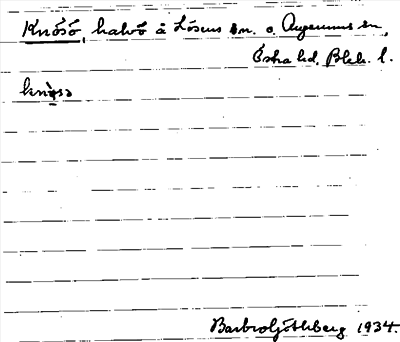 Knösö, halvö å Lösens sn. o. Augerums sn,
Östra hd. Blek. l.
knø̀sə
Barbro Göthberg 1934.